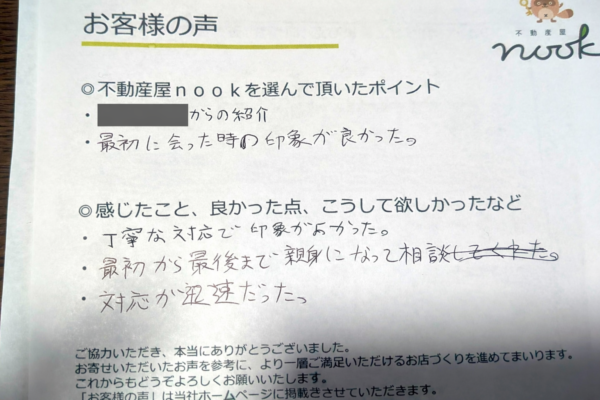 お客様の声
不動産屋
nook
◎不動産屋nookを選んで頂いたポイント
・からの紹介
・最初に会った時の印象が良かった。
◎感じたこと、良かった点、こうして欲しかったなど
・丁寧な対応で印象がよかった。
・最初から最後まで親身になって相談してくれた。
・対応が迅速だった。
ご協力いただき、本当にありがとうございました。
お寄せいただいたお声を参考に、より一層ご満足いただけるお店づくりを進めてまいります。
これからもどうぞよろしくお願いいたします。
「お客様の声」は当社ホームページに掲載させていただきます。